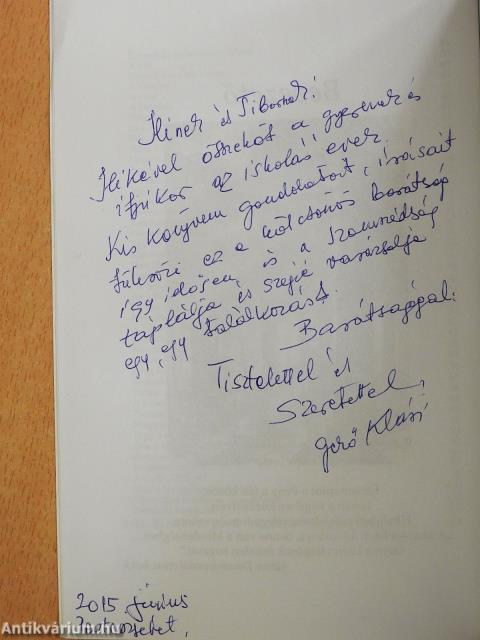 Ilinek és Tibornak!
Ilikével összeköt a gyermek és
ifjúkor az iskolás évek.
Kis könyvem gondolatait, írásait
ez a kölcsönös barátság
így idősen, és a szomszédság
táplálja és széppé varázsolja
egy, egy találkozást.
Barátsággal:
Tisztelettel és
Szeretettel,
Gerő Klári
2015 június
Antikvárium.hu